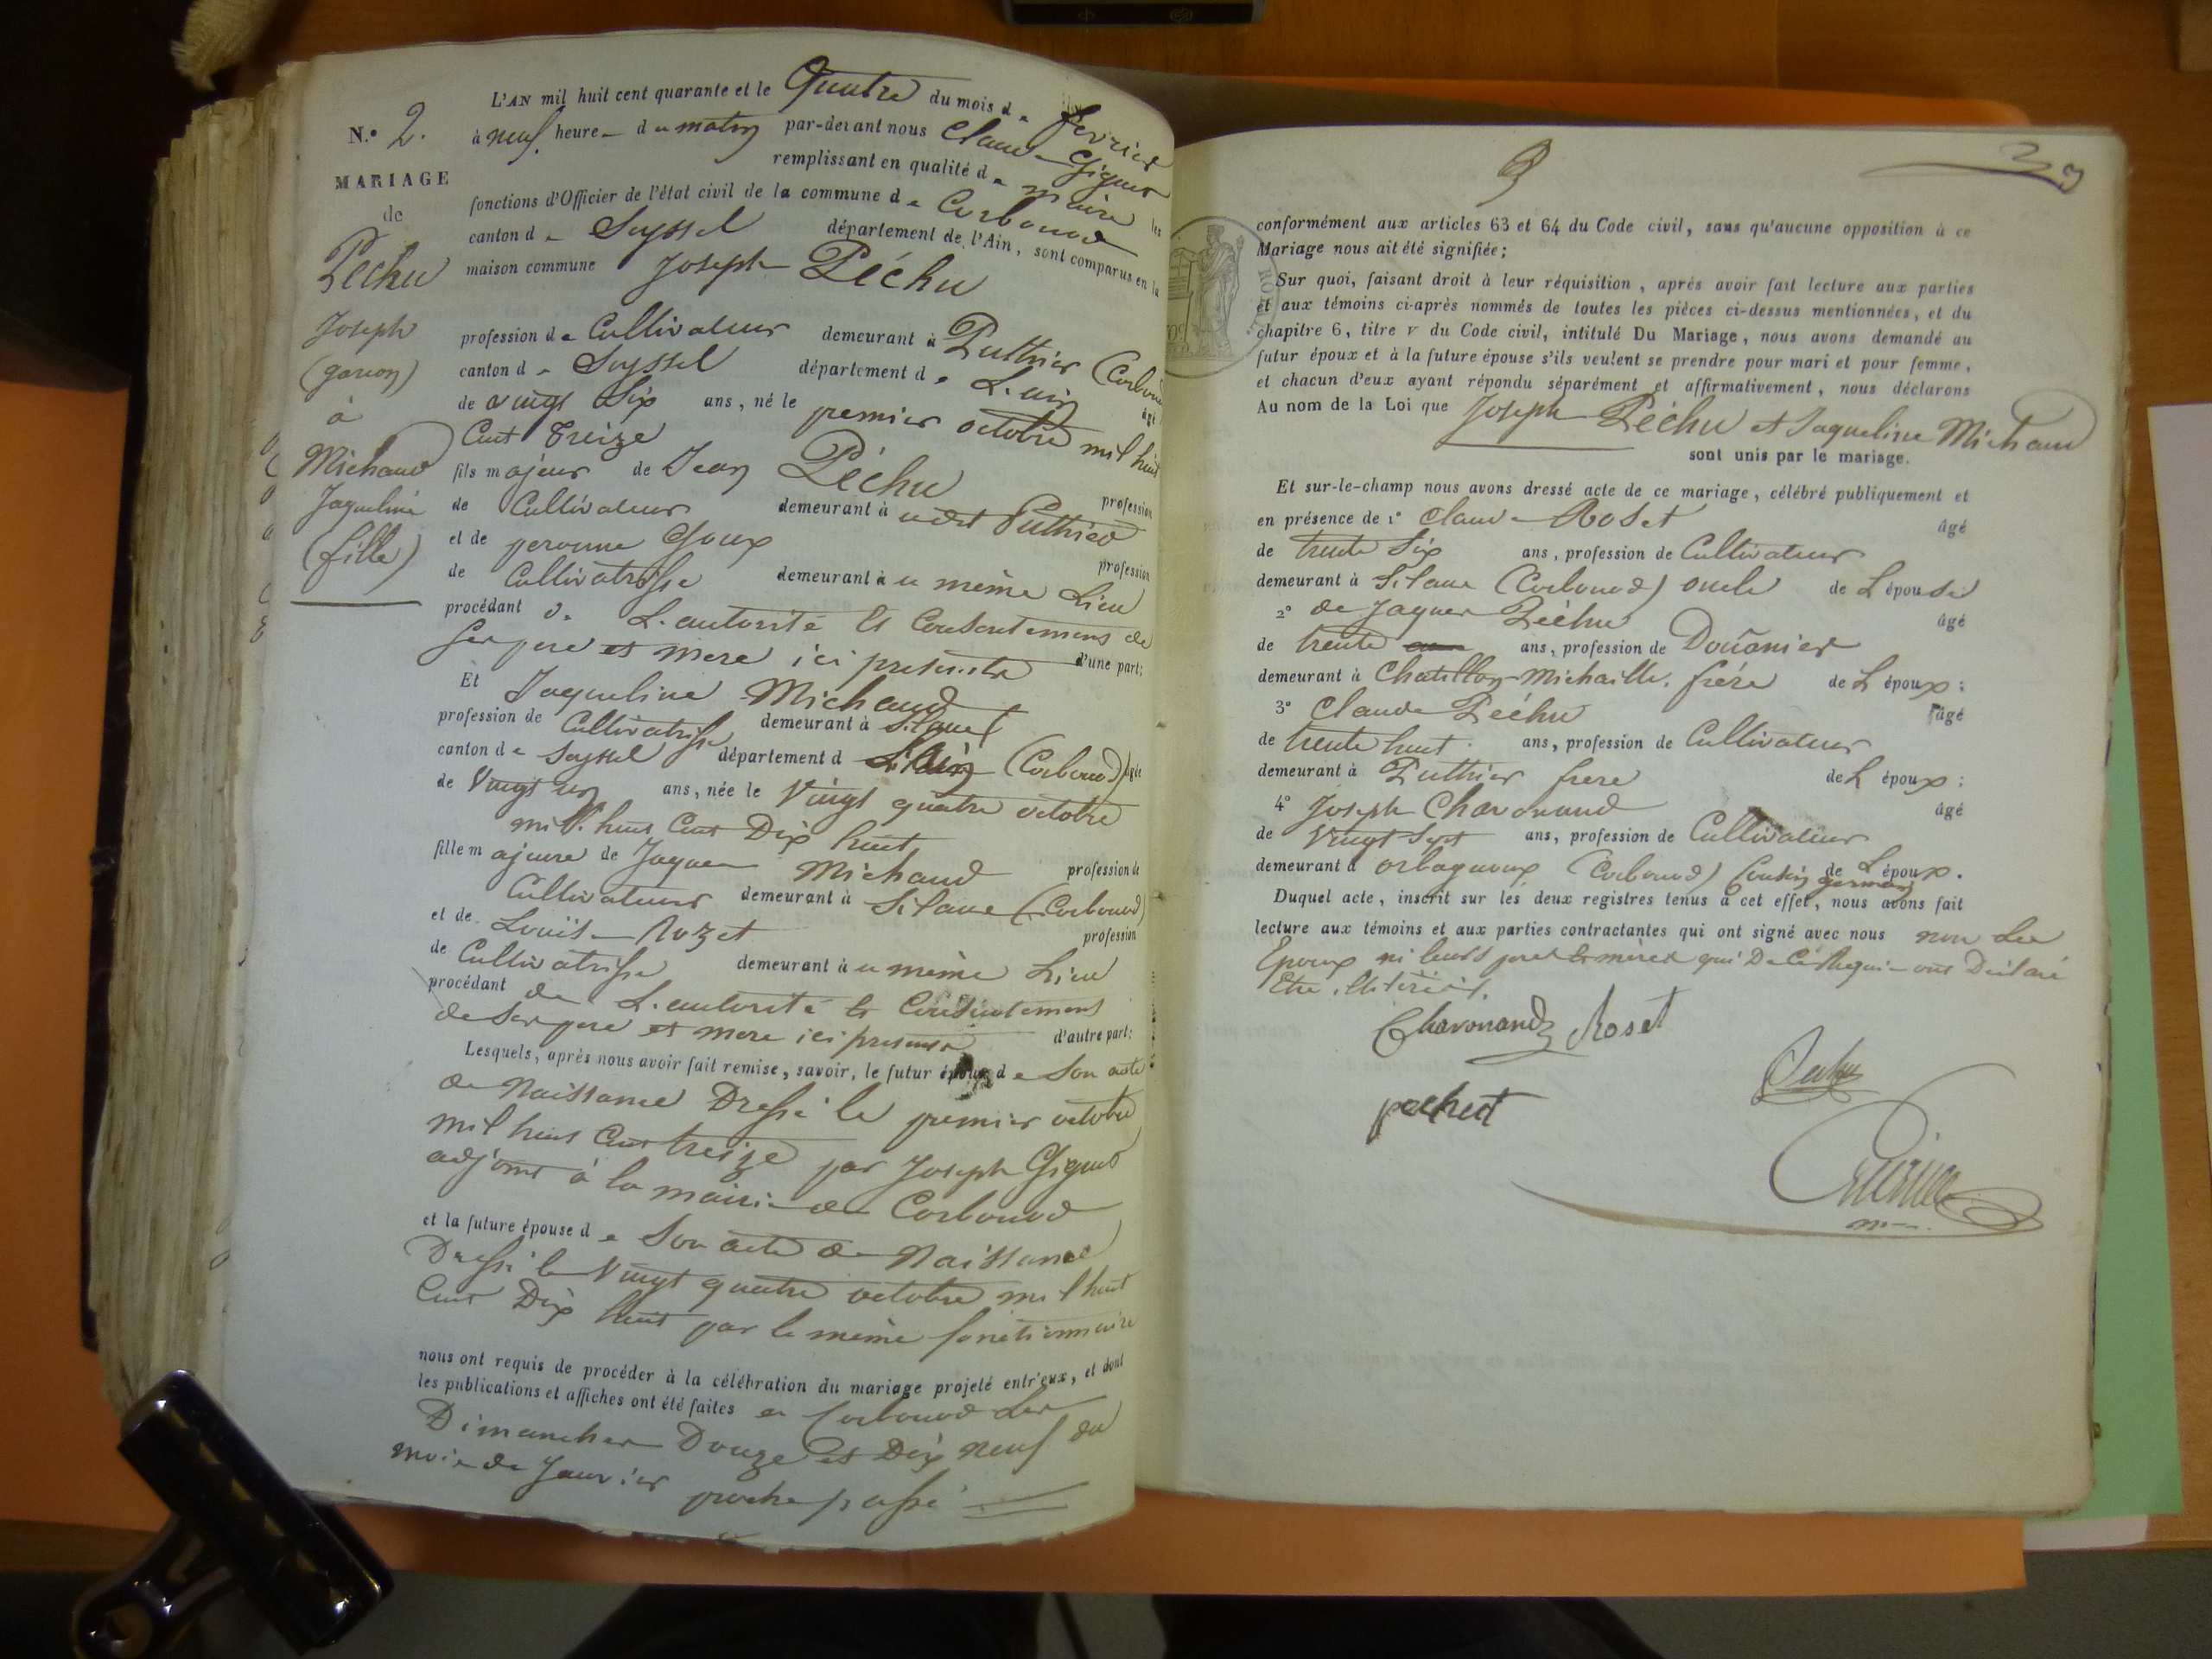 L'AN mil huit cent quarante et le Quatre du mois de fevrier
N.° 2. à neuf heure du matin par-devant nous Claude Gignet
remplissant en qualité de maire les
MARIAGE
fonctions d'Officier de l'état civil de la commune de Corbonod
de
canton de Seyssel département de l'Ain, sont comparus en la
Péchu
maison commune Joseph Péchu
Joseph
profession de Cultivateur demeurant à Puthier (Corbonod)
(garçon)
canton de Seyssel département de L'ain âgé
à
de vingt Six ans, né le premier octobre mil huit
Cent Treize
Michaud
fils majeur de Jean Péchu profession
Jaqueline
de Cultivateur demeurant à udit Puthier
(fille)
et de peronne profession
de Cultivatrisse demeurant à u même Lieu
procédant de L'autorité et Consentement de
Ses pere et mere ici presents d'une part;
Et Jaqueline Michaud
profession de Cultivatrisse demeurant à Silans
canton de Seyssel département d L'Ain (Corbonod) âgée
de Vingt un ans, née le Vingt quatre octobre
mil huit Cent Dix huit
fille majeure de Jaques Michaud profession de
Cultivateur demeurant à Silans (Corbonod)
et de Rozet profession
de Cultivatrisse demeurant à u même Lieu
procédant de L'autorité et Consentement
de Ses pere et mere ici presents d'autre part:
Lesquels, après nous avoir fait remise, savoir, le futur époux de Son acte
de Naissance Dressé le premier octobre
mil huit Cent treize par Joseph Gignet
adjoint à la mairie de Corbonod
et la future épouse de Son acte de Naissance
Dressé le Vingt quatre octobre mil huit
Cent Dix huit par le même fonctionnaire
nous ont requis de procéder à la célébration du mariage projeté entr'eux, et dont
les publications et affiches ont été faites a Corbonod Les
Dimanches Douze et Dix neuf du
mois de Janvier proche passé
3
conformément aux articles 63 et 64 du Code civil, sans qu'aucune opposition à ce
Mariage nous ait été signifiée;
Sur quoi, faisant droit à leur réquisition, après avoir fait lecture aux parties
et aux témoins ci-après nommés de toutes les pièces ci-dessus mentionnées, et du
chapitre 6, titre v du Code civil, intitulé Du Mariage, nous avons demandé au
futur époux et à la future épouse s'ils veulent se prendre pour mari et pour femme,
et chacun d'eux ayant répondu séparément et affirmativement, nous déclarons
Au nom de la Loi que Joseph Péchu et Jaqueline Michaud
sont unis par le mariage.
Et sur-le-champ nous avons dressé acte de ce mariage, célébré publiquement et
en présence de 1° Claude Roset âgé
de trente Six ans, profession de Cultivateur
demeurant à Silans (Corbonod) oncle de L épouse
2° de Jaques Péchu âgé
de trente ans, profession de Douanier
demeurant à Chatillon-Michaille. frére de L époux;
3° Claude Péchu âgé
de trente huit ans, profession de Cultivateur
demeurant à Puthier frere de L époux;
4° Joseph Charonand âgé
de Vingt Sept ans, profession de Cultivateur
demeurant à orbagnoux (Corbonod) Cousin germain de L époux.
Duquel acte, inscrit sur les deux registres tenus à cet effet, nous avons fait
lecture aux témoins et aux parties contractantes qui ont signé avec nous non Les
Epoux ni leurs peres et mères qui De Ce Requis ont Déclaré
Etre illitérés.
Charonand Roset
Pechu
pechut